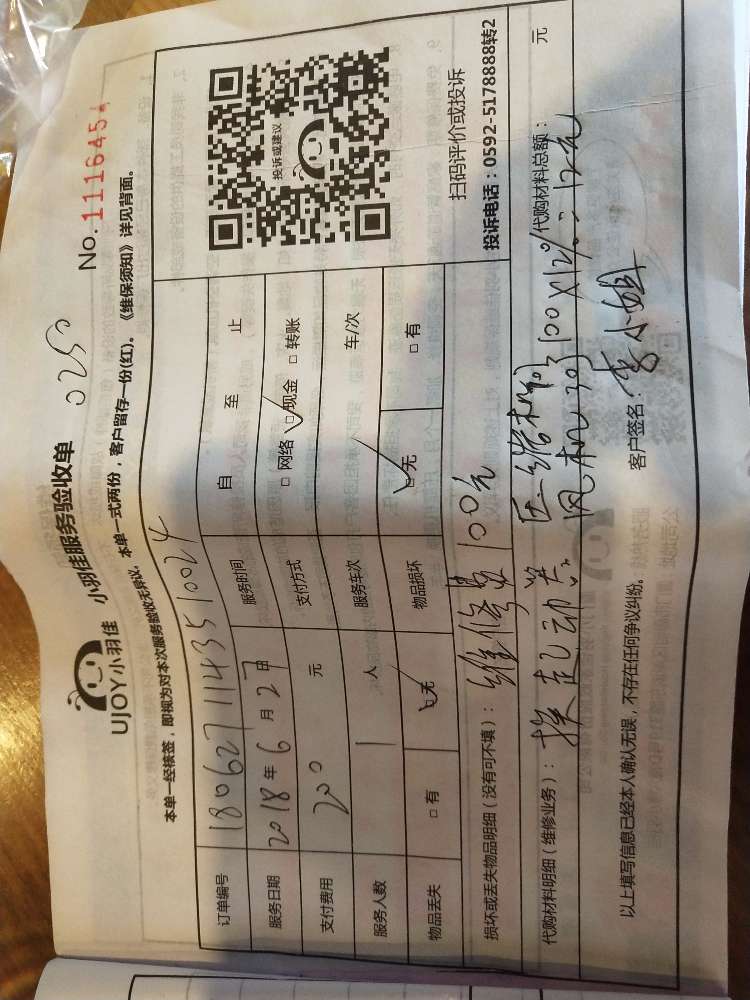 No.1116454
0250
UJOY小羽佳 小羽佳服务验收单
本单一经核签，即视为对本次服务验收无异议。本单一式两份，客户留存一份(红)。《维保须知》详见背面。
订单编号 1806271143510024
服务日期 2018年6月27日 服务时间 自 至 止
支付费用 200 元 支付方式 □网络 ☑现金 □转账
服务人数 1 人 服务车次 车/次
物品丢失 □有 ☑无 物品损坏 ☑无 □有
投诉或建议
扫码评价或投诉
投诉电话：0592-5178888转2
损坏或丢失物品明细（没有可不填）： 维修费100元
代购材料明细（维修业务）： 换起动类 代购材料总额： 元
风机 100X12%=12元
以上填写信息已经本人确认无误，不存在任何争议纠纷。 客户签名：李小姐